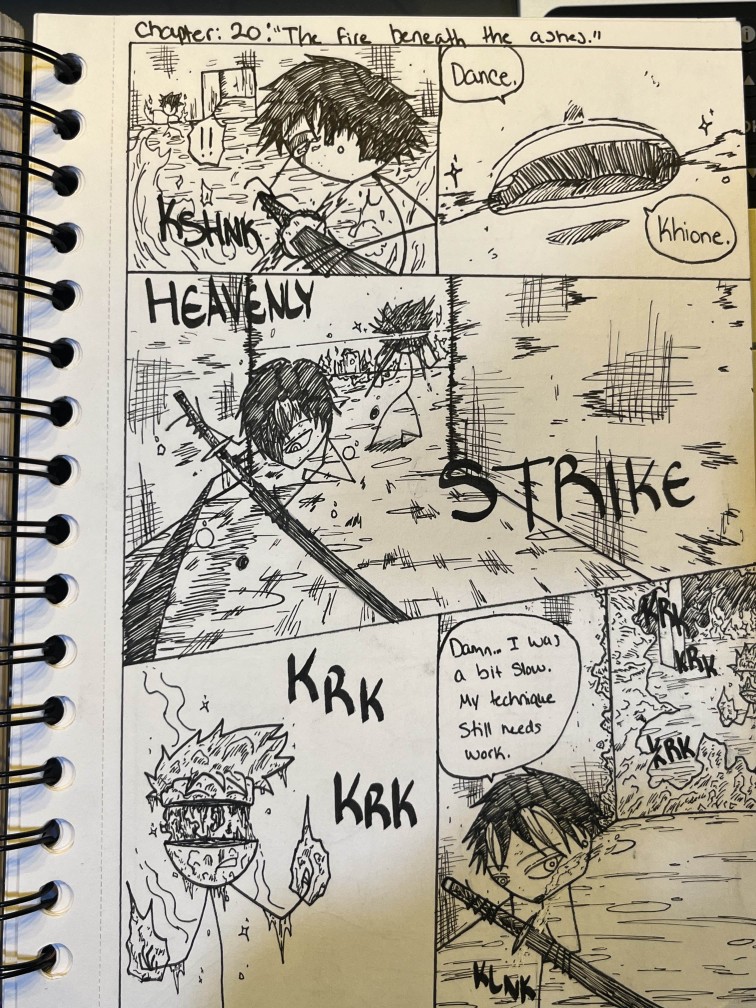 Chapter: 20: "The fire beneath the ashes."
!!
KSHNK
Dance.
Khione.
HEAVENLY
STRIKE
KRK
KRK
Damn... I was
a bit slow.
My technique
still needs
work.
KLNK
KRK
KRK
KRK